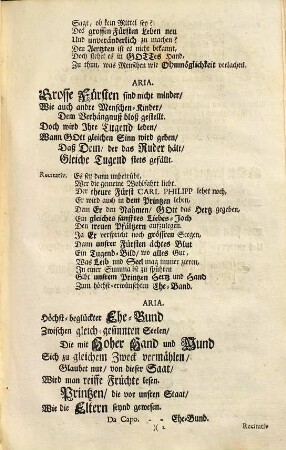 Sagt, ob kein Mittel sey?
Des grossen Fürsten Leben neu
Und unveränderlich zu machen?
Den Aertzten ist es nicht bekannt,
Doch stehet es in GOTTes Hand,
Zu thun, was Menschen wie Ohnmöglichkeit verlachen.
ARIA.
Grosse Fürsten sind nicht minder/
Wie auch andre Menschen-Kinder/
Dem Verhängnuß bloß gestellt.
Doch wird Ihre Tugend leben/
Wann GOtt gleichen Sinn wird geben/
Daß Dem/ der das Ruder hält/
Gleiche Tugend stets gefällt.
Recitativ. Es sey dann unbetrübt,
Wer die gemeine Wohlfahrt liebt.
Der theure Fürst CARL PHILIPP lebet noch,
Er wird auch in dem Printzen leben,
Dem Er den Nahmen/ GOtt das Hertz gegeben,
Ein gleiches sanfftes Liebes-Joch
Den treuen Pfältzern aufzulegen.
Ja Er verspricht noch grössern Seegen,
Dann unsrer Fürsten ächtes Blut
Ein Tugend-Bild/ wo alles Gut,
Was Leib und Seel mag immer zieren,
In einer Summa ist zu spühren
Gibt unsrem Printzen Hertz und Hand
Zum höchst-erwünschten Ehe-Band.
ARIA.
Höchst-beglückter Ehe-Bund
Zwischen gleich-gesinnten Seelen/
Die mit Hoher Hand und Mund
Sich zu gleichem Zweck vermählen/
Glaubet nur/ von dieser Saat/
Wird man reiffe Früchte lesen.
Printzen/ die vor unsten Staat/
Wie die Eltern seynd gewesen.
Da Capo. - - Ehe-Bund.
)( 2 Recitativ